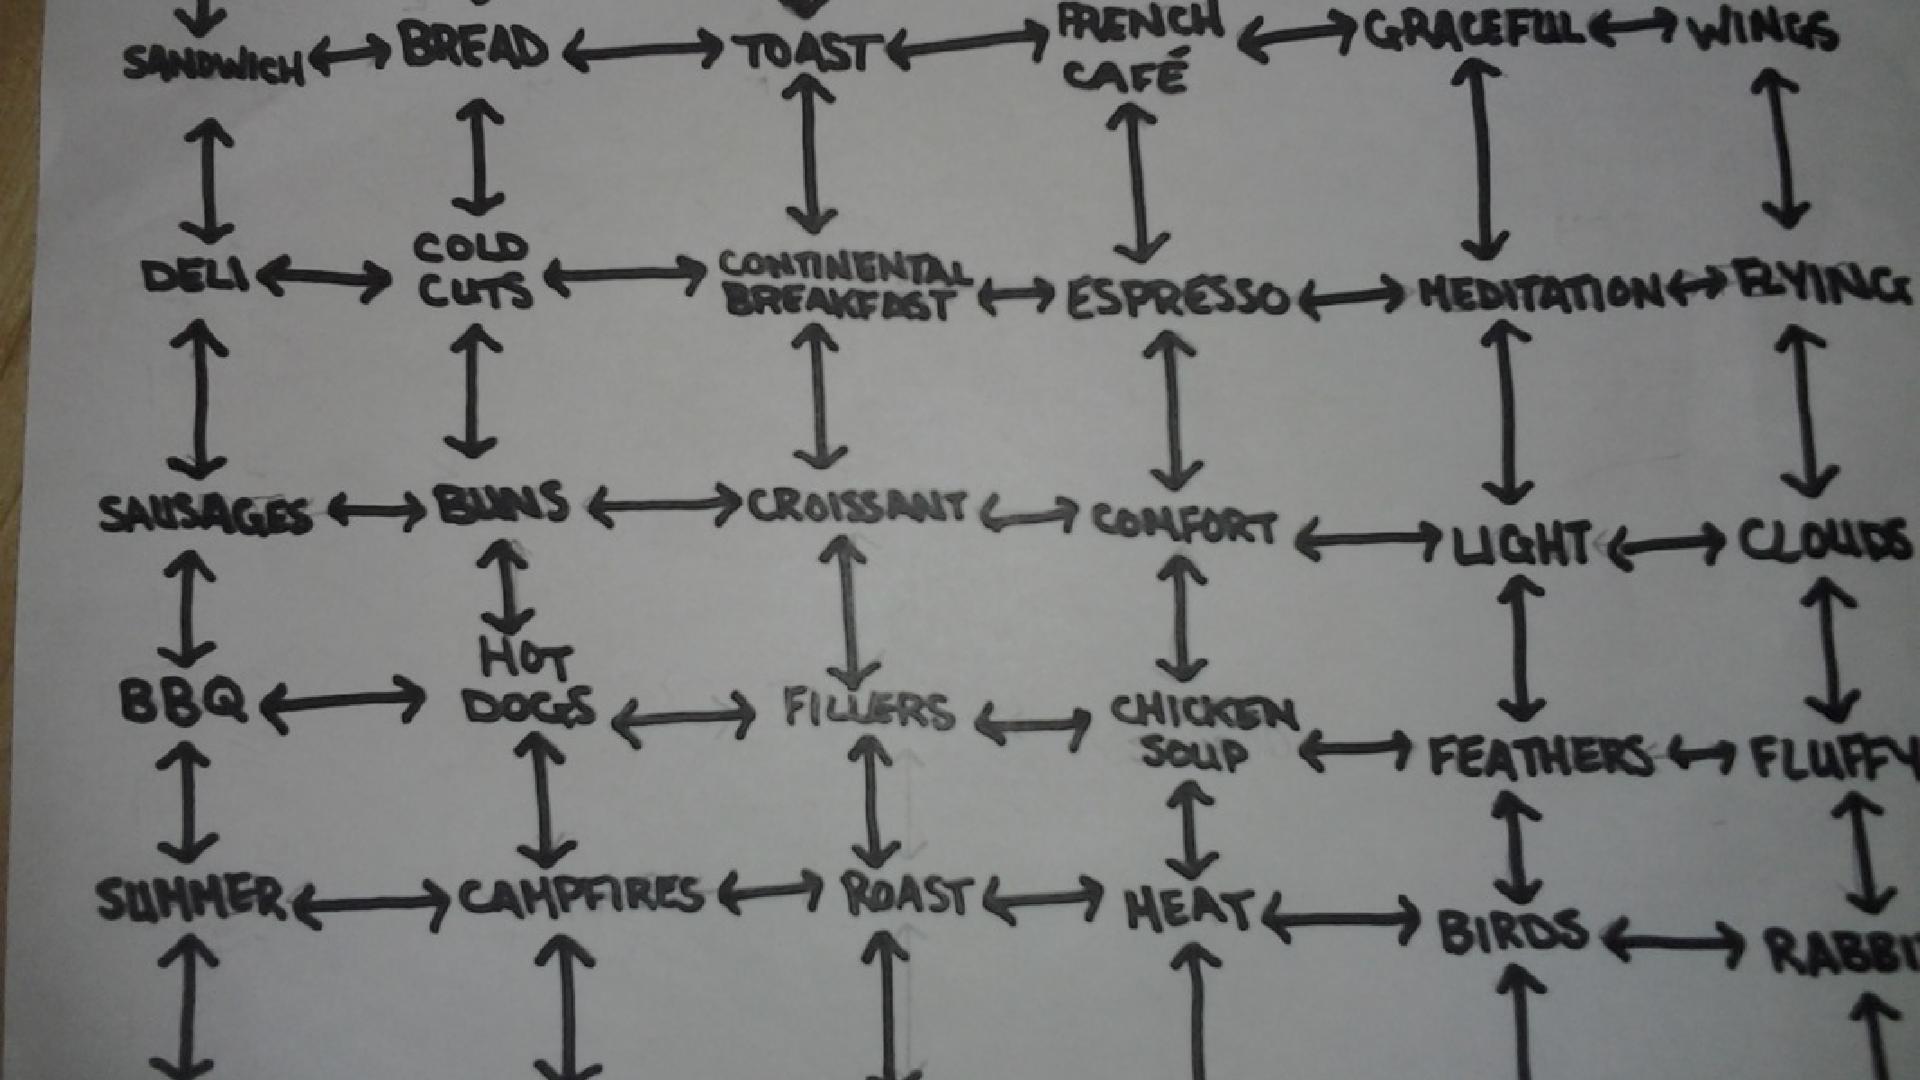 SANDWICH BREAD TOAST FRENCH CAFÉ GRACEFUL WINGS
DELI COLD CUTS CONTINENTAL BREAKFAST ESPRESSO MEDITATION FLYING
SAUSAGES BUNS CROISSANT COMFORT LIGHT CLOUDS
BBQ HOT DOGS FILLERS CHICKEN SOUP FEATHERS FLUFFY
SUMMER CAMPFIRES ROAST MEAT BIRDS RABBI